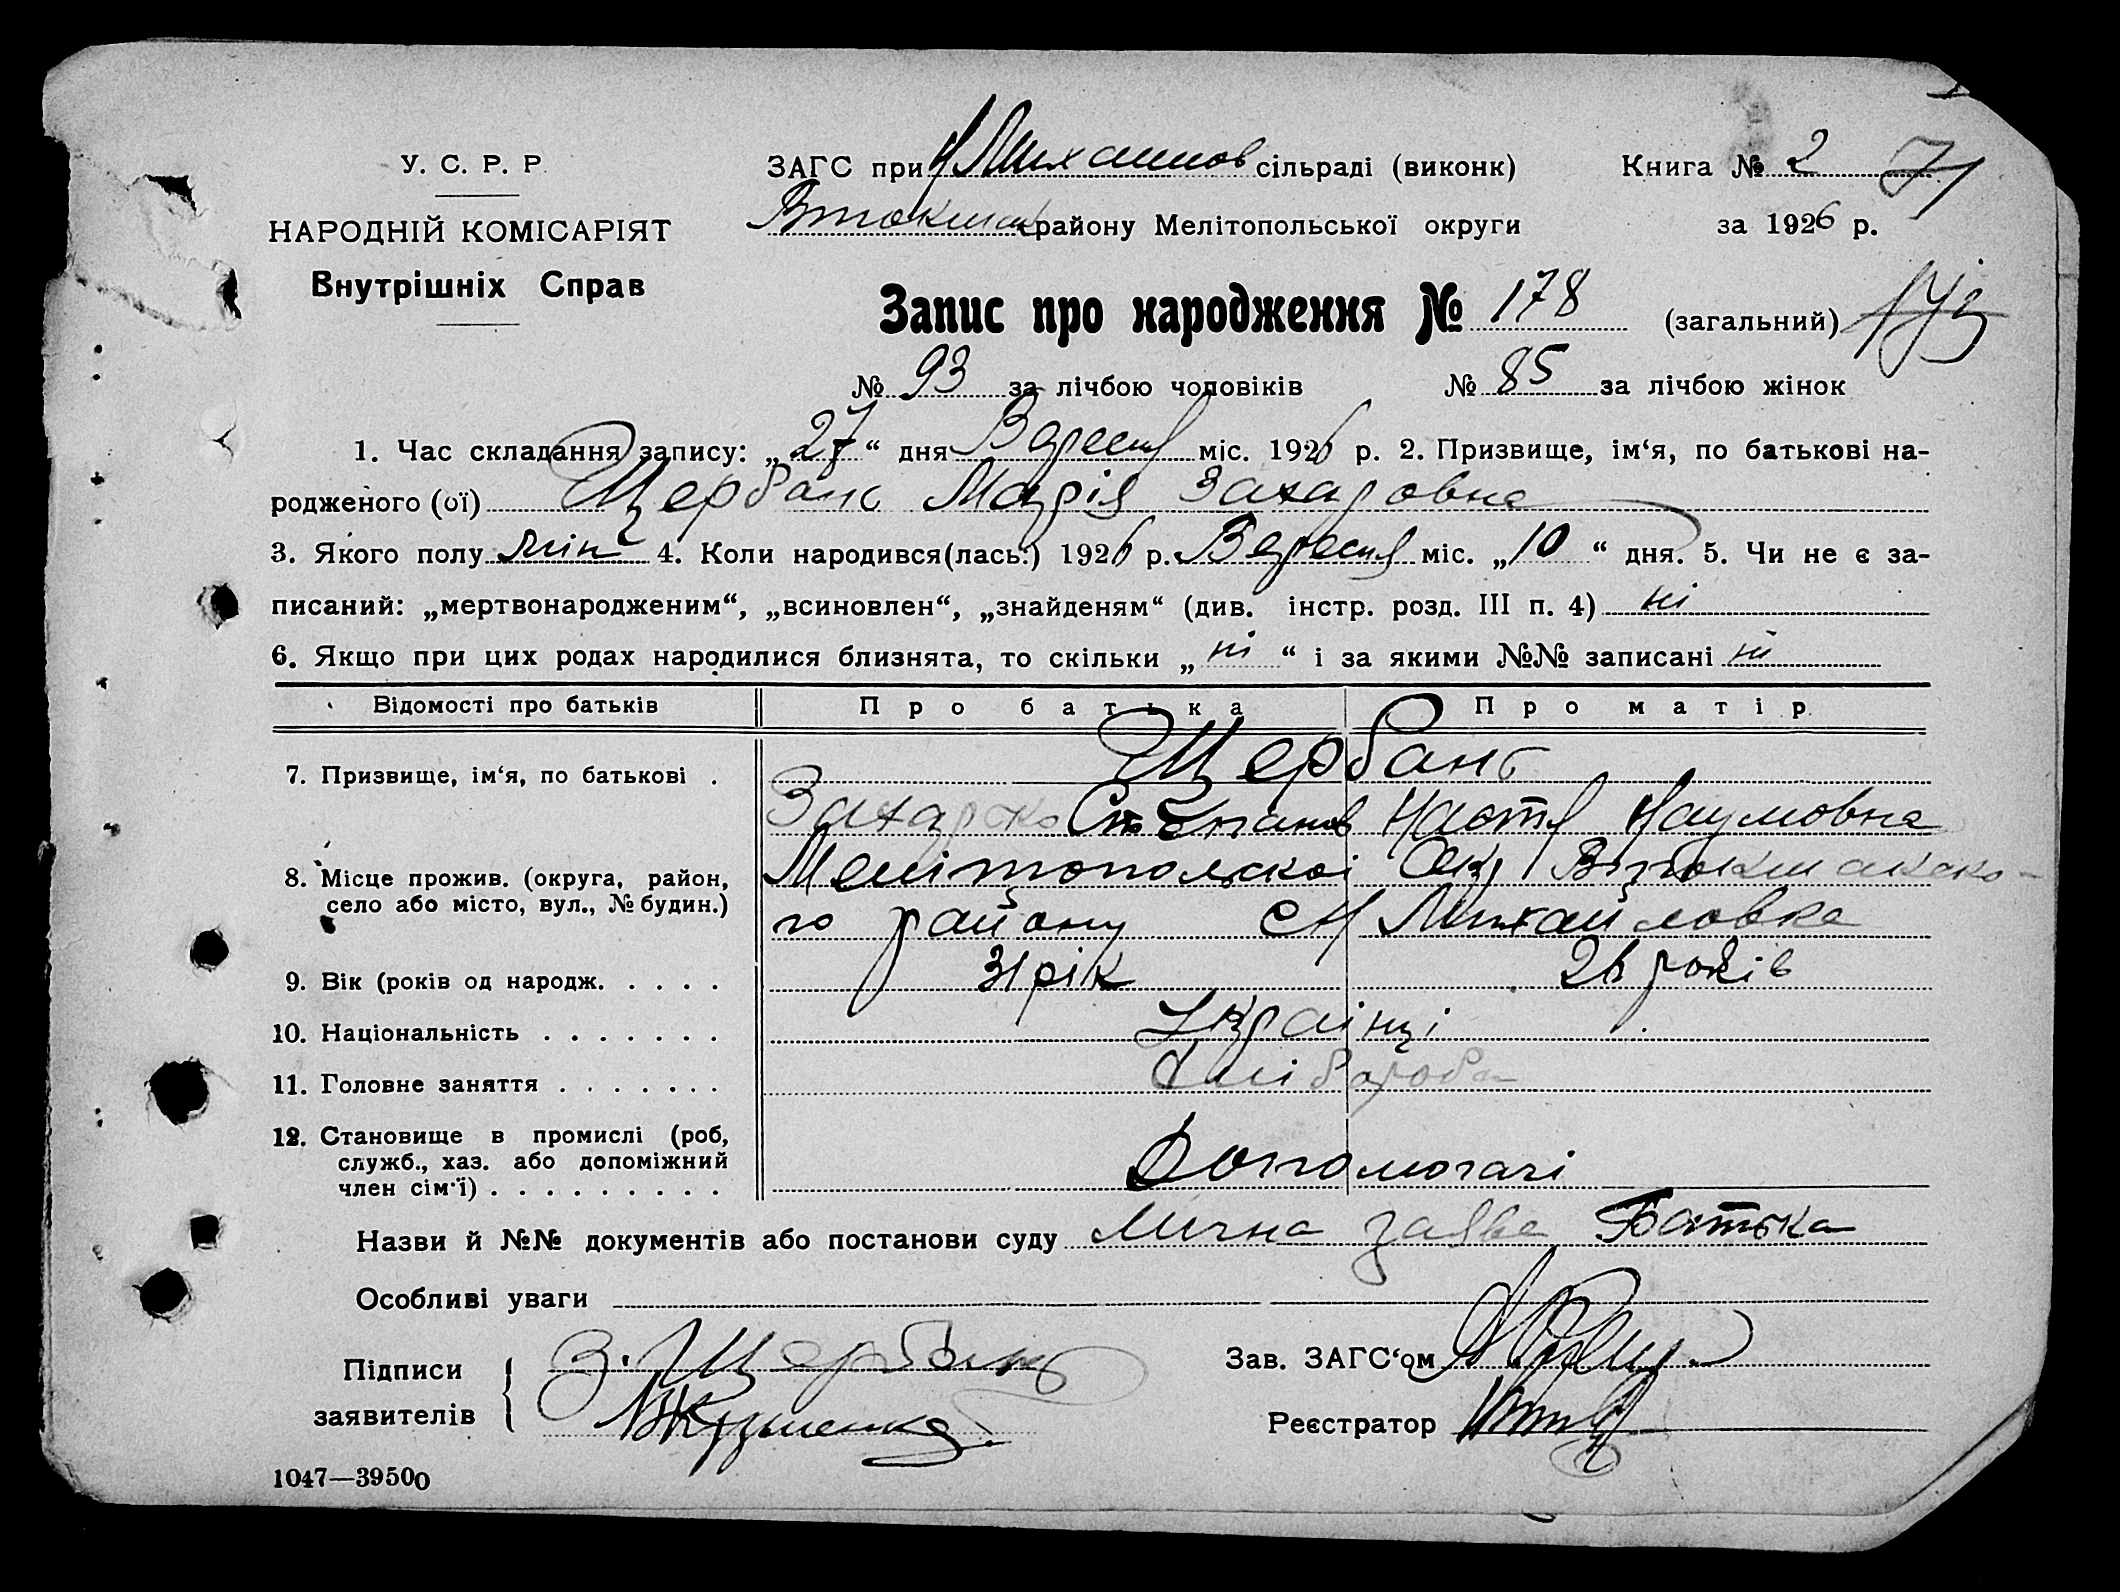 У. С. Р. Р.
НАРОДНІЙ КОМІСАРІЯТ
Внутрішніх Справ
ЗАГС при Н Михайлов сільраді (виконк)
Втокмак району Мелітопольської округи
Книга № 2 71
за 1926 р.
Запис про народження № 178 (загальний)
№ 93 за лічбою чоловіків № 85 за лічбою жінок
1. Час складання запису: „27“ дня Вересня міс. 1926 р. 2. Призвище, ім‘я, по батькові на-
родженого (ої) Щербань Марія Захаровна
3. Якого полу жін 4. Коли народився(лась:) 1926 р. Вересня міс. „10“ дня. 5. Чи не є за-
писаний: „мертвонародженим“, „всиновлен“, „знайденям“ (див. інстр. розд. III п. 4) ні
6. Якщо при цих родах народилися близнята, то скільки „ні“ і за якими №№ записані ні
Відомості про батьків Про батька Про матір
7. Призвище, ім‘я, по батькові . Щербань
Захарко Степанов Настя Наумовна
8. Місце прожив. (округа, район, село або місто, вул., № будин.) Мелітопольскоі Окр Втокмакско-
го району с Н Михайловка
9. Вік (років од народж. . . . . 31 рік 26 років
10. Національність . . . . . . . Українці
11. Головне заняття . . . . . . . хлібороба
12. Становище в промислі (роб, служб., хаз. або допоміжний член сім‘ї) . . . . . . . . . Допомогачі
Назви й №№ документів або постанови суду Лична заява Батька
Особливі уваги
Підписи заявителів З. Щербань
Зав. ЗАГС‘ом
Реєстратор
1047—39500